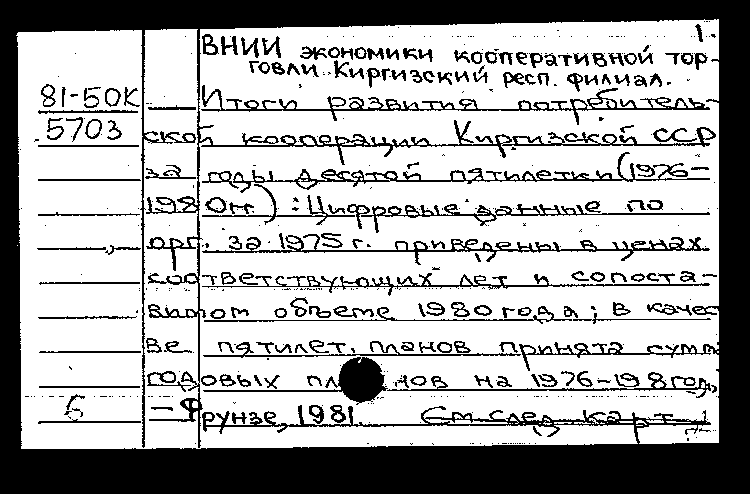 1.
ВНИИ экономики кооперативной тор-
говли. Киргизский респ. филиал.
81-50К Итоги развития потребитель-
5703 ской кооперации Киргизской ССР
за годы десятой пятилетки (1976-
1980гг.) : Цифровые данные по
орг. за 1975 г. приведены в ценах
соответствующих лет и сопоста-
вимом объеме 1980 года; в качес
ве пятилет. планов принята сумма
годовых планов на 1976-198 год,
6 - Фрунзе, 1981. См. след. карт.